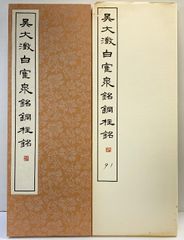 吳大澂白雲泉銘銅柱銘
吳大澂白雲泉銘銅柱銘
91